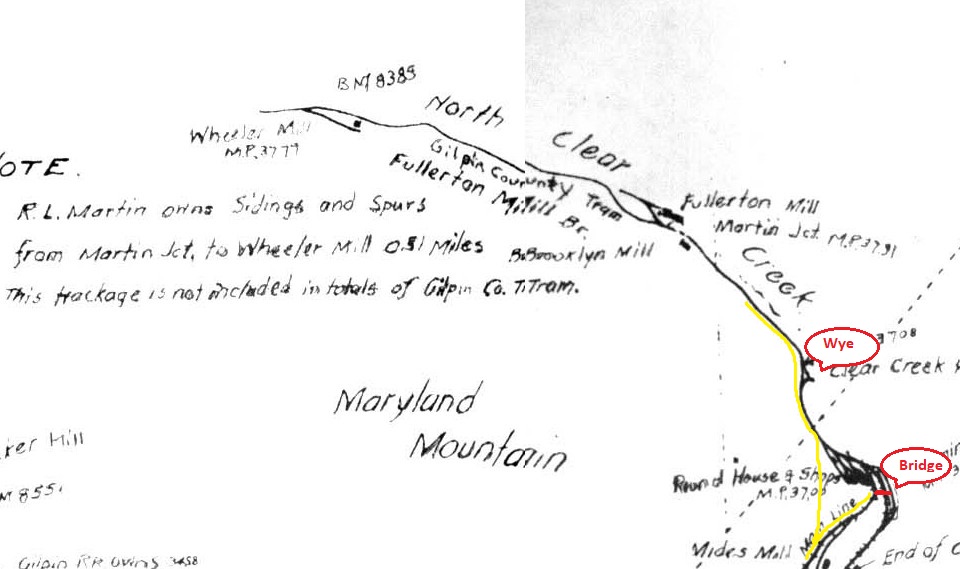 BM 8389
North
Clear
Wheeler Mill
M.P. 3779
Gilpin County Tram
Fullerton Mill Br.
Fullerton Mill
Martin Jct. M.P. 3731
OTE.
R.L. Martin owns Sidings and Spurs
from Martin Jct. to Wheeler Mill 0.51 Miles
Brooklyn Mill
This trackage is not included in totals of Gilpin Co. T. Tram.
Creek
Wye
3708
Clear Creek
Maryland
Mountain
ker Hill
8551
Bridge
Round House & Shops
M.P. 3700
Main Line
Mides Mill
End of
Gilpin RR owns 3458